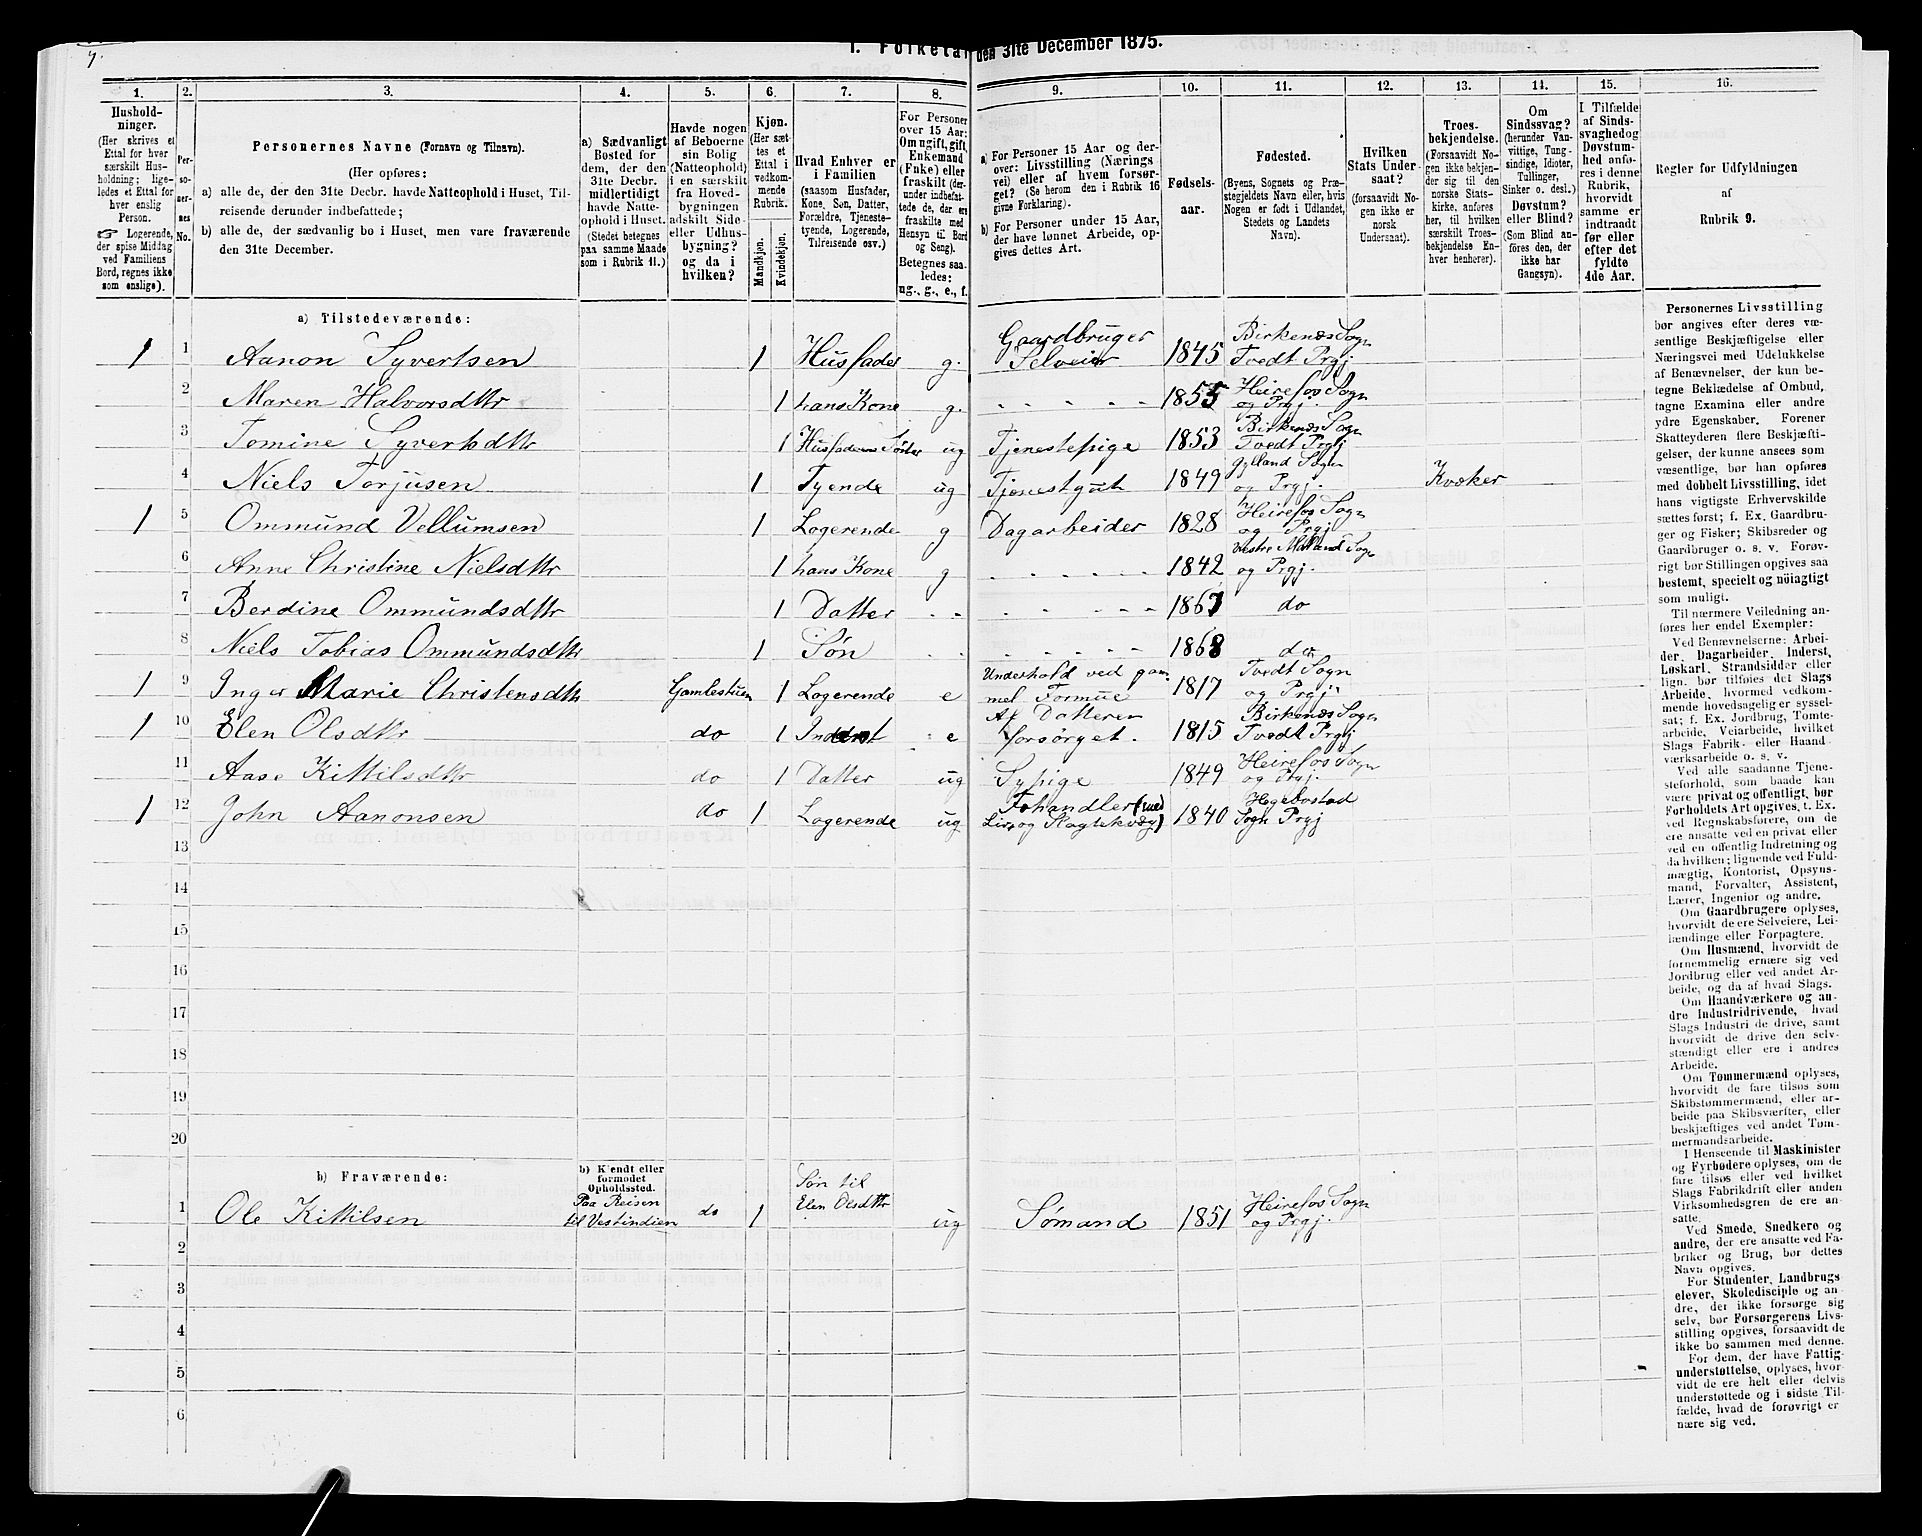 7.
1. Folketal den 31te December 1875.
1. 2. 3. 4. 5. 6. 7. 8. 9. 10. 11. 12. 13. 14. 15. 16.
Hushold-
ninger.
(Her skrives et
Ettal for hver
særskilt Hus-
holdning; lige-
ledes et Ettal for
hver enslig
Person.
☞ Logerende,
der spise Middag
ved Familiens
Bord, regnes ikke
som enslige).
Per-
so-
ner-
nes
No.
Personernes Navne (Fornavn og Tilnavn).
(Her opføres:
a) alle de, der den 31te Decbr. havde Natteophold i Huset, Til-
reisende derunder indbefattede;
b) alle de, der sædvanlig bo i Huset, men vare fraværende
den 31te December.
a) Sædvanligt
Bosted for
dem, der den
31te Decbr.
midlertidigt
havde Natte-
ophold i Huset.
(Stedet betegnes
paa samme Maade
som i Rubrik 11.)
Havde nogen
af Beboerne
sin Bolig
(Natteophold)
i en særskilt
fra Hoved-
bygningen
adskilt Side-
eller Udhus-
bygning?
og da i
hvilken?
Kjøn.
(Her sæt-
tes et
Ettal i
vedkom-
mende
Rubrik.
Mandkjøn.
Kvindekjøn.
Hvad Enhver er
i Familien
(saasom Husfader,
Kone, Søn, Datter,
Forældre, Tjeneste-
tyende, Logerende,
Tilreisende osv.)
For Personer
over 15 Aar:
Om ugift, gift,
Enkemand
(Enke) eller
fraskilt (der-
under indbefat-
tede de, der ere
fraskilte med
Hensyn til Bord
og Seng).
Betegnes saa-
ledes:
ug., g., e., f.
a) For Personer 15 Aar og der-
over: Livsstilling (Nærings
vei) eller af hvem forsør-
get? (Se herom den i Rubrik 16
givne Forklaring).
b) For Personer under 15 Aar,
der have lønnet Arbeide, op-
gives dettes Art.
Fødsels-
aar.
Fødested.
(Byens, Sognets og Præ-
stegjeldets Navn eller, hvis
Nogen er født i Udlandet,
Stedets og Landets
Navn).
Hvilken
Stats Under-
saat?
(forsaavidt No-
gen ikke er
norsk
Undersaat).
Troes-
bekjendelse.
(Forsaavidt No-
gen ikke bekjen-
der sig til den
norske Stats-
kirke, anføres
her, til hvilken
særskilt Troes-
bekjendelse En-
hver henhører).
Om
Sindssvag?
(herunder Van-
vittige, Tung-
sindige, Idioter,
Tullinger,
Sinker o. desl.)
Døvstum?
eller Blind?
(Som Blind an-
føres den, der
ikke har
Gangsyn).
I Tilfælde
af Sinds-
svaghed og
Døvstum-
hed anfø-
res i denne
Rubrik,
hvorvidt
samme er
indtraadt
før eller
efter det
fyldte
4de Aar.
Regler for Udfyldningen
af
Rubrik 9.
a) Tilstedeværende:
1 1 Aanon Syvertsen 1 Husfader g. Gaardbruger Selveier 1845 Birkenæs Sogn Tvedt Prgj
2 Maren Halvorsdttr 1 hans Kone g. - - - - - 1855 Heirefos Sogn og Prgj.
3 Tomine Syvertsdttr 1 Husfaderens Søster ug Tjenestepige 1853 Birkenæs Sogn Tvedt Prgj
4 Niels Torjusen 1 Tyende ug Tjenestgut 1849 Gylland Sogn og Prgj. Kvæker
1 5 Ommund Vellumsen 1 Logerende g Dagarbeider 1828 Heirefos Sogn og Prgj
6 Anne Christine Nielsdttr 1 hans Kone g - - - - - 1842 Vestre Moland Sogn og Prgj.
7 Berdine Ommundsdttr 1 Datter - - - - - - - 1867 do
8 Niels Tobias Ommundsdttr 1 Søn - - - - - - - 1868 do
1 9 Inger Marie Christensdttr Gamlestuen 1 Logerende e Underhold ved gam mel Formue 1817 Tvedt Sogn og Prgj.
1 10 Elen Olsdttr do 1 Inderst e Af Datteren forsørget. 1815 Birkenæs Sogn Tvedt Prgj
11 Aase Kittilsdttr do 1 Datter ug Sypige 1849 Heirefos Sogn og Prgj.
1 12 John Aanonsen do 1 Logerende ug Fehandler (med Livs og Slagtekvæg) 1840 Hegebostad Sogn Prgj
13
14
15
16
17
18
19
20
b) Fraværende:
b) Kjendt eller
formodet
Opholdssted.
1 Ole Kittilsen Paa Reisen til Vestindien do 1 Søn til Elen Olsdttr ug Sømand 1851 Heirefos Sogn og Prgj.
2
3
4
5
6
Personernes Livsstilling
bør angives efter deres væ-
sentlige Beskjæftigelse eller
Næringsvei med Udelukkelse
af Benævnelser, der kun be-
tegne Beklædelse af Ombud,
tagne Examina eller andre
ydre Egenskaber. Forener
Skatteyderen flere Beskjæfti-
gelser, der kunne ansees som
væsentlige, bør han opføres
med dobbelt Livsstilling, idet
hans vigtigste Erhvervskilde
sættes først; f. Ex. Gaardbru-
ger og Fisker; Skibsreder og
Gaardbruger o. s. v. Forøv-
rigt bør Stillingen opgives saa
bestemt, specielt og nøiagtigt
som muligt.
Til nærmere Veiledning an-
føres her endel Exempler:
Ved Benævnelserne: Arbei-
der, Dagarbeider, Inderst,
Løskarl, Strandsidder eller
lign. bør tilføies det Slags
Arbeide, hvormed vedkom-
mende hovedsagelig er syssel-
sat; f. Ex. Jordbrug, Tomte-
arbeide, Veiarbeide, hvilket
Slags Fabrik- eller Haand
værksarbeide o. s. v.
Ved alle saadanne Tjene-
steforhold, som baade kan
være privat og offentligt, bør
Forholdets Art opgives, t. Ex.
ved Regnskabsførere, om de
ere ansatte ved en privat eller
ved en offentlig Indretning og
da hvilken; lignende ved Fuld-
mægtig, Kontorist, Opsyns-
mand, Forvalter, Assistent,
Lærer, Ingeniør og andre.
Om Gaardbrugere oplyses,
hvorvidt de ere Selveiere, Lei-
lændinge eller Forpagtere.
Om Husmænd, hvorvidt de
fornemmelig ernære sig ved
Jordbrug eller ved andet Ar-
beide, og da af hvad Slags.
Om Haandværkere og an-
dre Industridrivende, hvad
Slags Industri de drive, samt
hvorvidt de drive den selv-
stændigt eller ere i andres
Arbeide.
Om Tømmermænd oplyses,
hvorvidt de fare tilsøs som
Skibstømmermænd, eller ar-
beide paa Skibsværfter, eller
beskjæftiges ved andet Tøm-
mermandsarbeide.
I Henseende til Maskinister
og Fyrbødere oplyses, om de
fare tilsøs eller ved hvilket
Slags Fabrikdrift eller anden
Virksomhedsgren de ere an-
satte.
Ved Smede, Snedkere og
andre, der ere ansatte ved Fa-
briker og Brug, bør dettes
Navn opgives.
For Studenter, Landbrugs
elever, Skoledisciple og an-
dre, der ikke forsørge sig
selv, bør Forsørgerens Livs-
stilling opgives, forsaavidt de
ikke bo sammen med denne.
For dem, der have Fattig-
understøttelse, oplyses, hvor-
vidt de ere helt eller delvis
understøttede og i sidste Til-
fælde, hvad de forøvrigt er
nære sig ved.